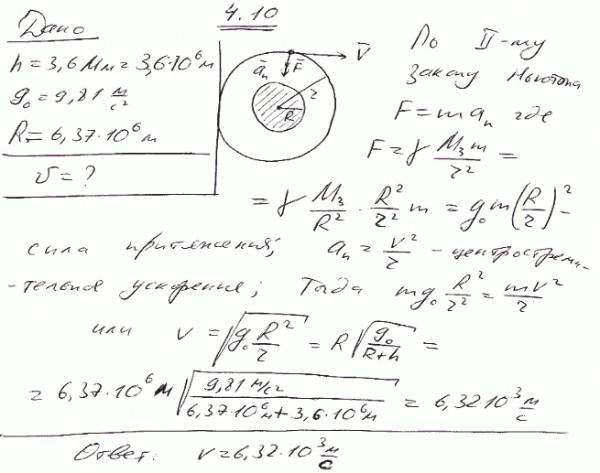 4.10
Дано
h = 3,6 Мм = 3,6·10⁶ м
g₀ = 9,81 м/с²
R = 6,37·10⁶ м
v = ?
aₙ F V
r
R
По II-му
закону Ньютона
F = maₙ где
F = γ M₃m/r² =
= γ M₃/R² · R²/r² m = g₀m(R/r)² -
сила притяжения; aₙ = v²/r - центростреми-
-тельное ускорение; Тогда mg₀ R²/r² = mv²/r
или v = √(g₀ R²/r) = R√(g₀/(R+h)) =
= 6,37·10⁶ м √(9,81 м/с² / (6,37·10⁶м + 3,6·10⁶м)) = 6,32 10³ м/с
Ответ: v = 6,32·10³ м/с